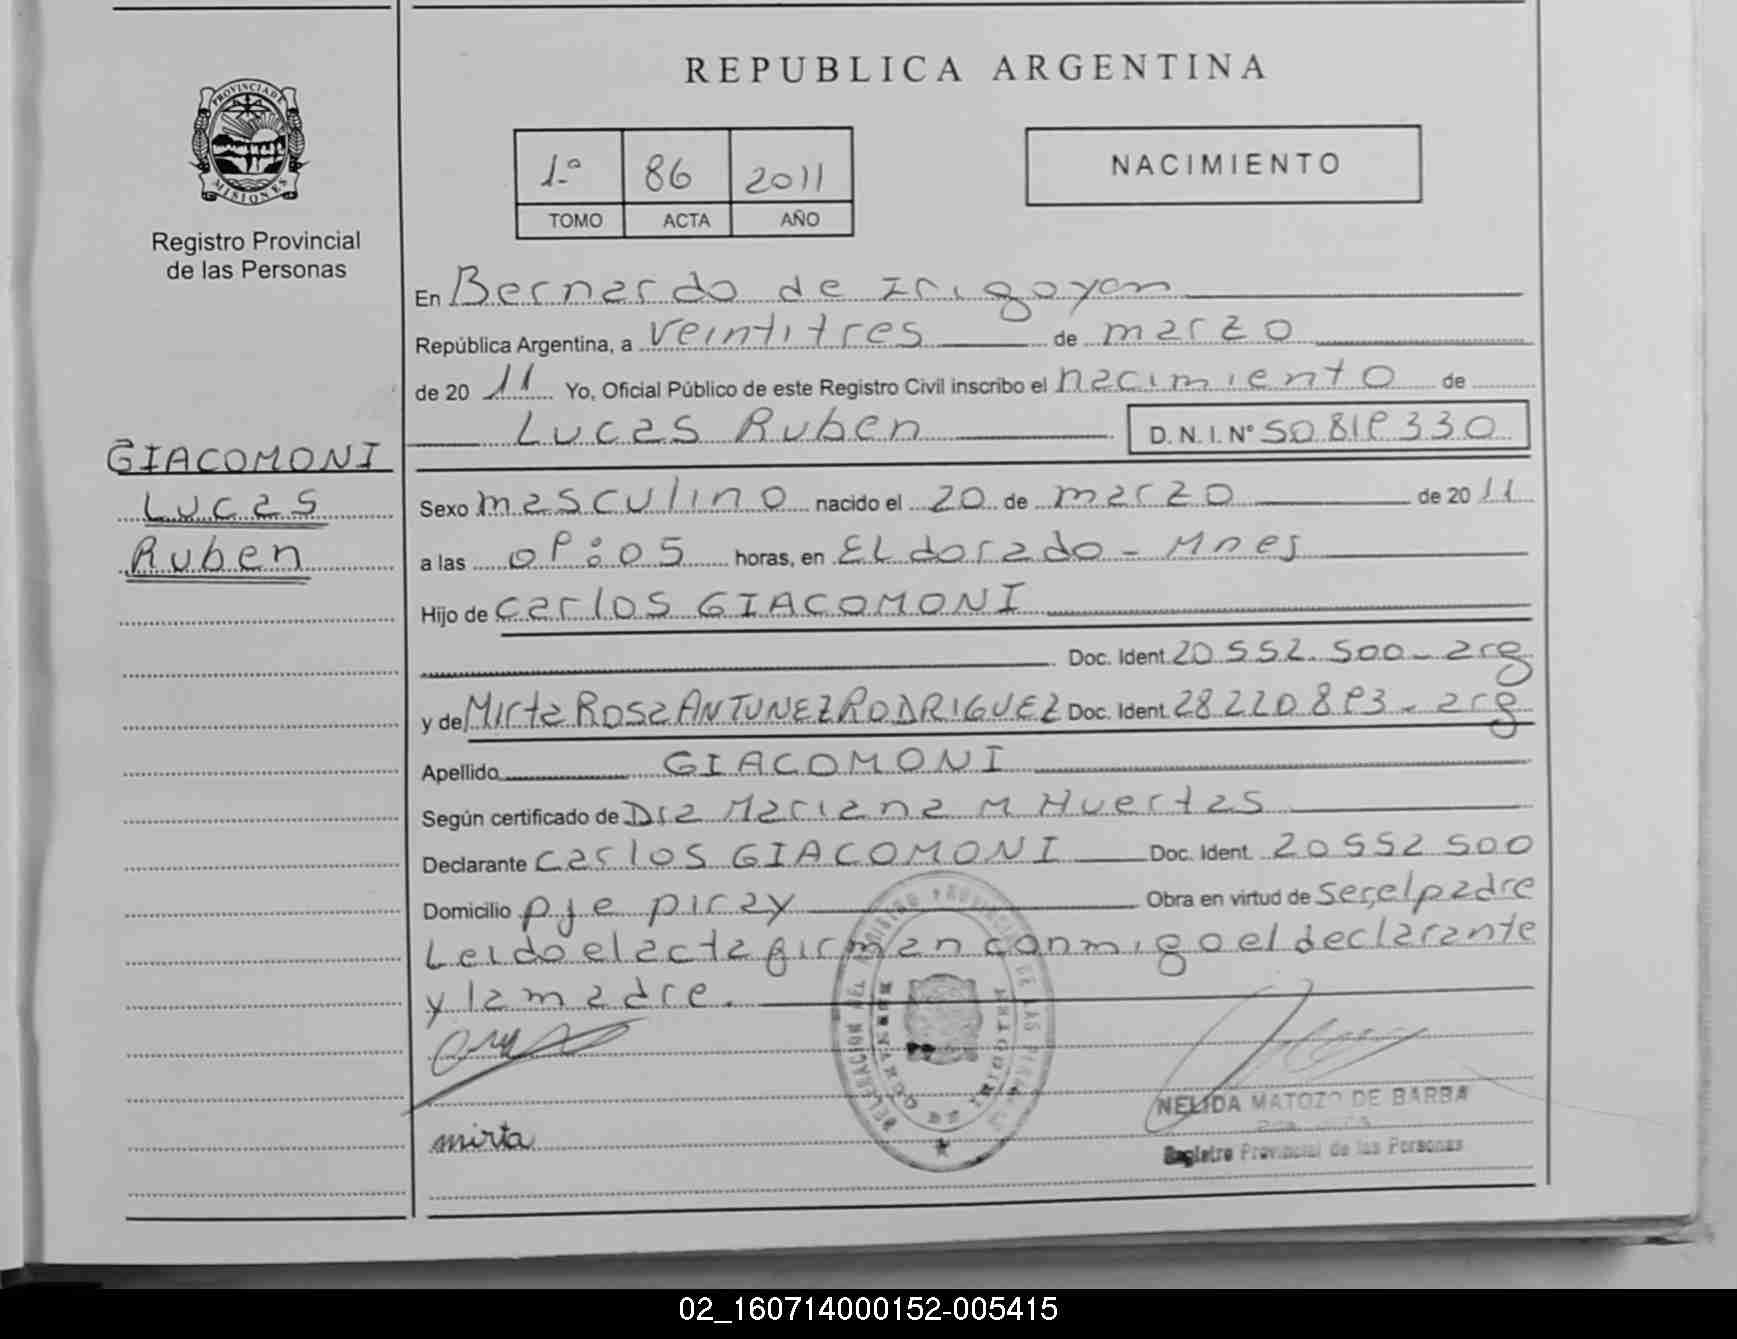 REPUBLICA ARGENTINA
PROVINCIA DE
MISIONES
Registro Provincial
de las Personas
1.º 86 2011
TOMO ACTA AÑO
NACIMIENTO
En Bernardo de Irigoyen
República Argentina, a veintitres de marzo
de 20 11 Yo, Oficial Público de este Registro Civil inscribo el nacimiento de
Lucas Ruben D.N.I.Nº 50.819.330
GIACOMONI
Lucas
Ruben
Sexo masculino nacido el 20 de marzo de 20 11
a las 09:05 horas, en ELdorado - Mnes
Hijo de Carlos GIACOMONI
Doc. Ident. 20.552.500 - arg
y de Mirta Rosa ANTUNEZ RODRIGUEZ Doc. Ident. 28.220.893 - arg
Apellido GIACOMONI
Según certificado de Dra Mariana M Huertas
Declarante Carlos GIACOMONI Doc. Ident. 20552500
Domicilio pje piray Obra en virtud de ser el padre
Leido el acta firman conmigo el declarante
y la madre.
mirta
NELIDA MATOZO DE BARBA
Registro Provincial de las Personas
02_160714000152-005415